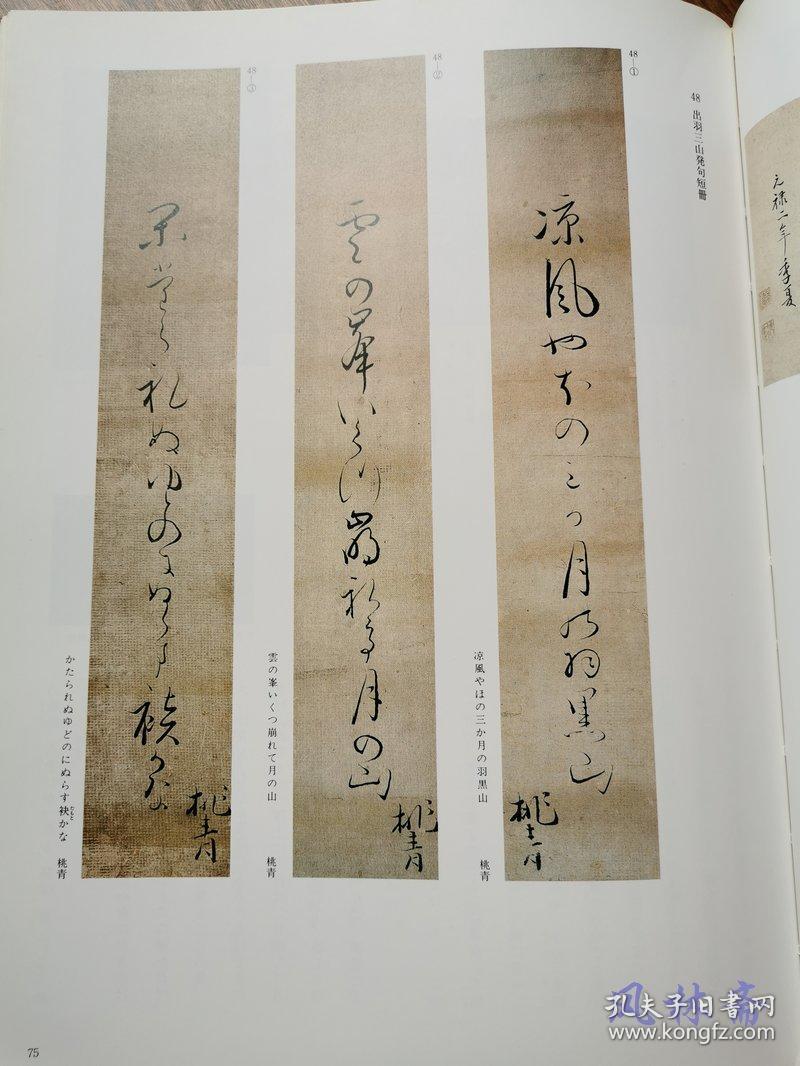 48 出羽三山発句短冊
48―①
涼風やほの三か月の羽黒山
桃青
涼風やほの三か月の羽黒山　桃青
48―②
雲の峯いくつ崩れて月の山
桃青
雲の峯いくつ崩れて月の山　桃青
48―③
桃青
かたられぬゆどのにぬらす袂かな　桃青
たもと
元禄二年季夏
75
风林斋
孔夫子旧书网
www.kongfz.com